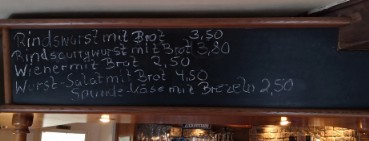 Rindswurst mit Brot 3,50
Rindscurrywurst mit Brot 3,80
Wiener mit Brot 2,50
Wurst-Salat mit Brot 4,50
mit 2,50